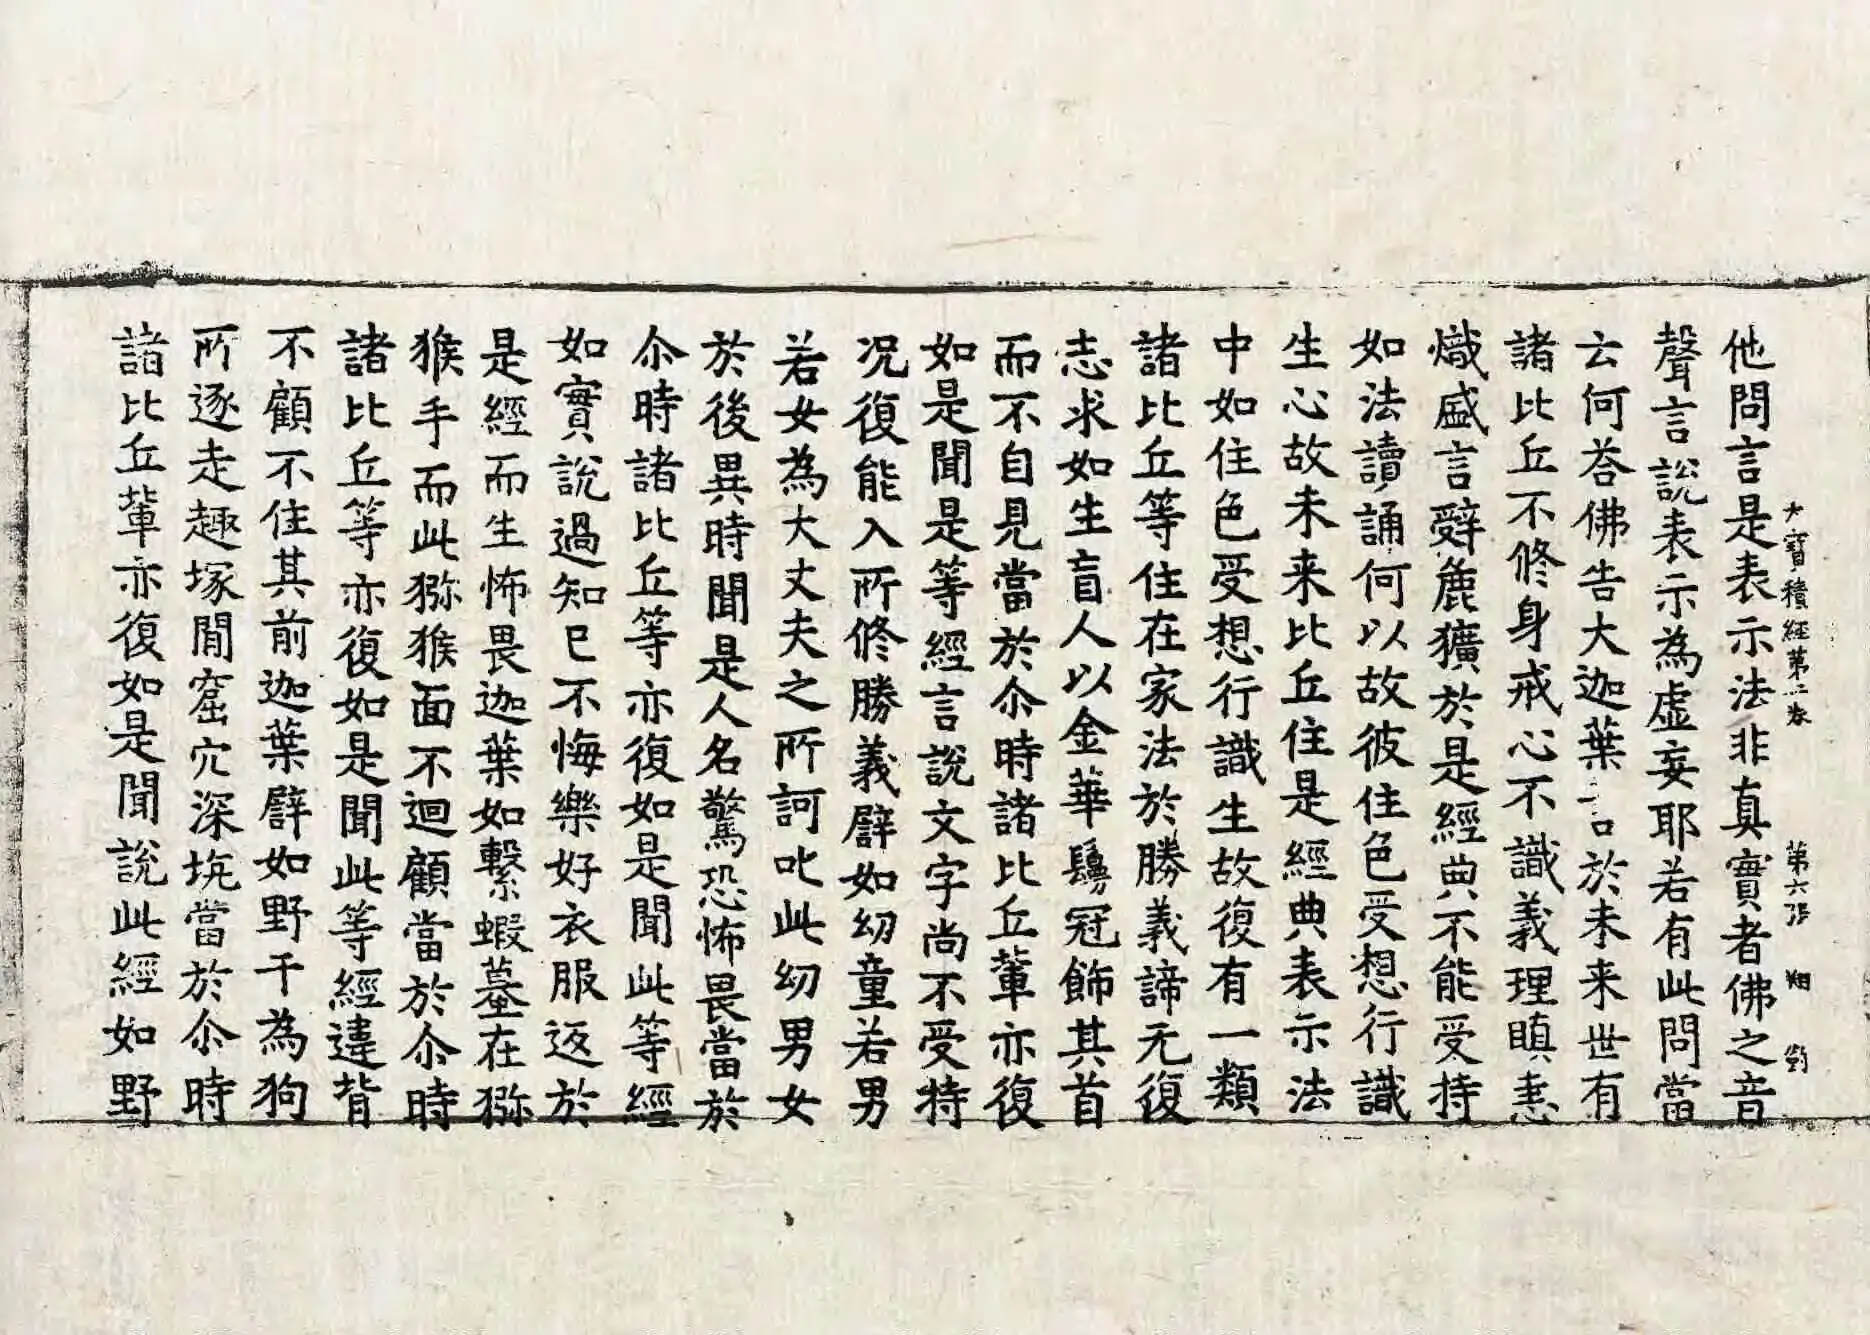 大寶積經第二卷 第六張
他問言是表示法非真實者佛之音
聲言說表示為虛妄耶若有此問當
云何荅佛告大迦葉言於未来世有
諸比丘不修身戒心不識義理瞋恚
熾盛言辭麁獷於是經典不能受持
如法讀誦何以故彼住色受想行識
生心故未来比丘住是經典表示法
中如住色受想行識生故復有一類
諸比丘等住在家法於勝義諦无復
志求如生盲人以金華鬘冠飾其首
而不自見當於尒時諸比丘輩亦復
如是聞是等經言說文字尚不受持
况復能入所修勝義辟如幼童若男
若女為大丈夫之所訶叱此幼男女
於後異時聞是人名驚恐怖畏當於
尒時諸比丘等亦復如是聞此等經
如實說過知已不悔樂好衣服返於
是經而生怖畏迦葉如繫蝦蟇在猕
猴手而此猕猴面不迴顧當於尒時
諸比丘等亦復如是聞此等經違背
不顧不住其前迦葉辟如野干為狗
所逐走趣塚間窟穴深坑當於尒時
諸比丘輩亦復如是聞說此經如野